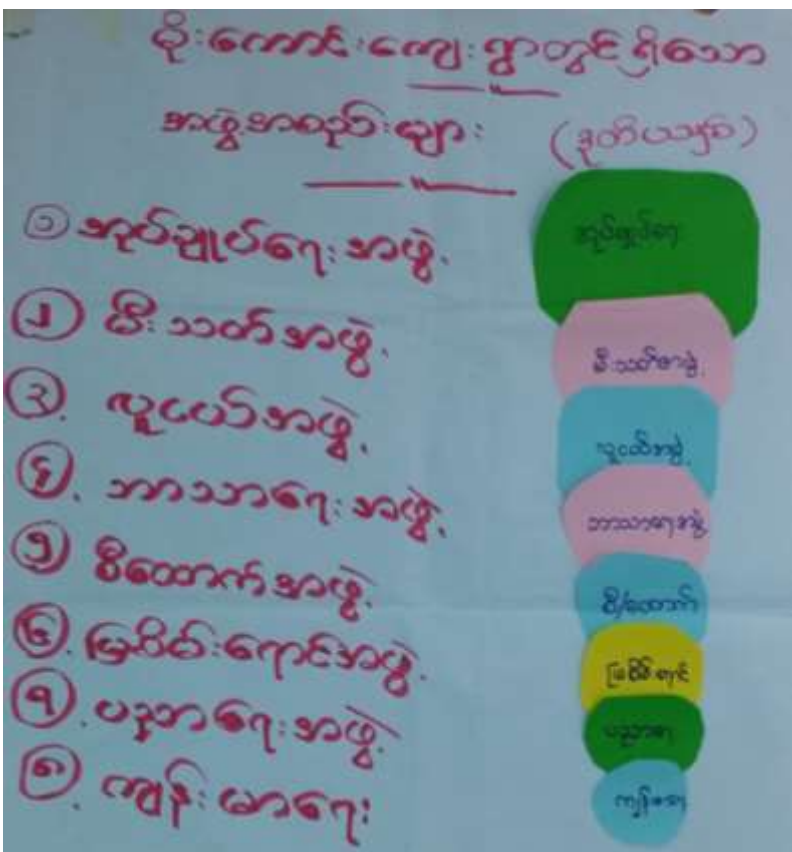 မိုးကောင်းကျေးရွာတွင်ရှိသော
အဖွဲ့အစည်းများ (ဒုတိယမြစ်)
၁ အုပ်ချုပ်ရေးအဖွဲ့
၂ မီးသတ်အဖွဲ့
၃. လူငယ်အဖွဲ့
၄. ဘာသာရေးအဖွဲ့
၅ စီထောက်အဖွဲ့
၆. မြစိမ်းရောင်အဖွဲ့
၇. ပညာရေးအဖွဲ့
၈. ကျန်းမာရေး
အုပ်ချုပ်ရေး
မီးသတ်အဖွဲ့
လူငယ်အဖွဲ့
ဘာသာရေးအဖွဲ့
စီ/ထောက်
မြစိမ်းရောင်
ပညာရေး